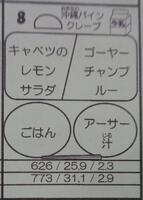 8
おきなわ
沖縄パイン
クレープ
牛乳
キャベツの
レモン
サラダ
ゴーヤー
チャンプ
ルー
ごはん
アーサー
じる
汁
626 / 25.9 / 2.3
773 / 31.1 / 2.9